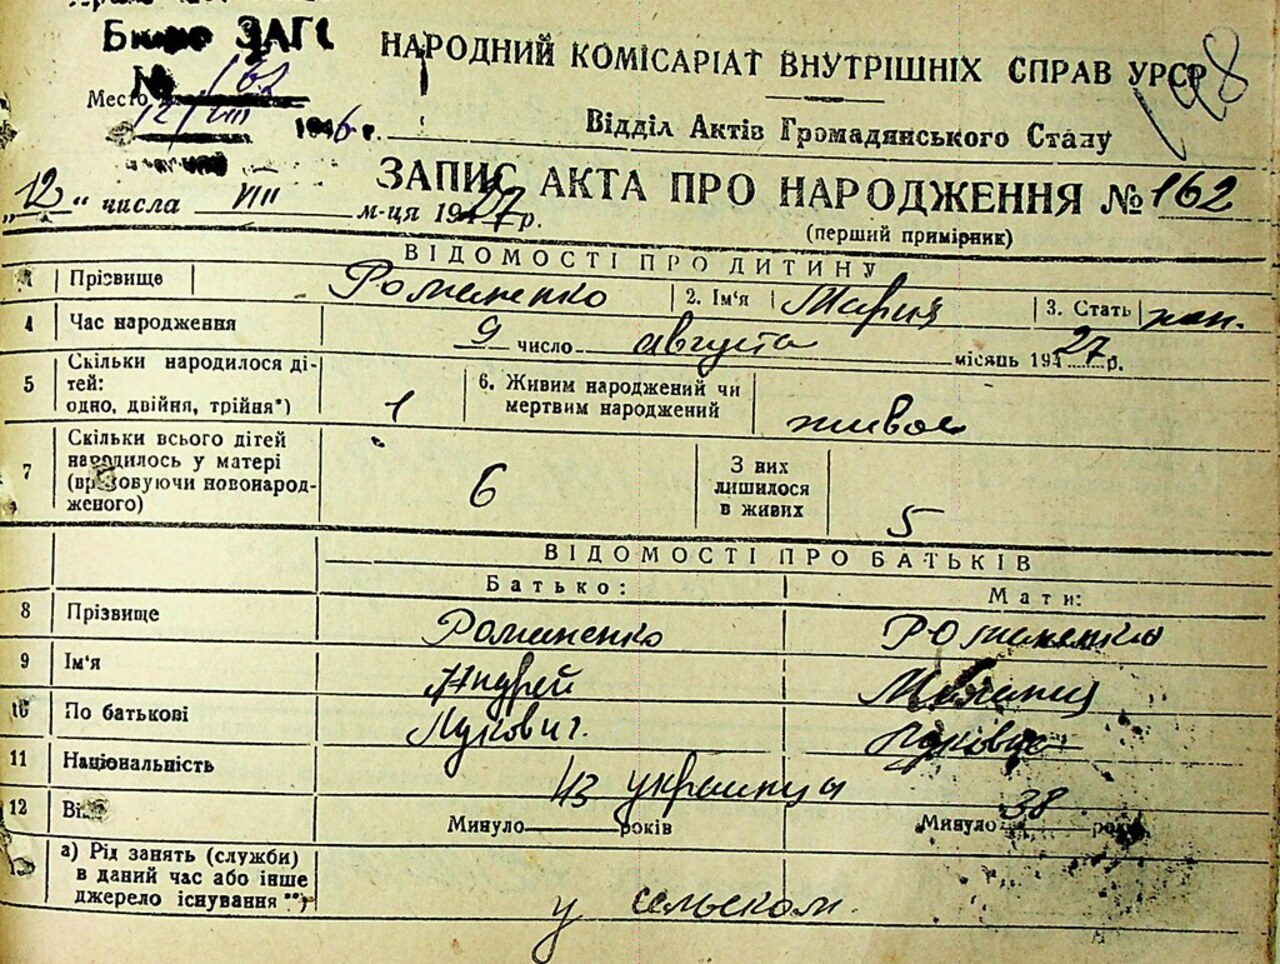 Бюро ЗАГС
НАРОДНИЙ КОМІСАРІАТ ВНУТРІШНІХ СПРАВ УРСР
198
№ 162
Место
12/VIII 1946 г.
Відділ Актів Громадянського Стану
ЗАПИС АКТА ПРО НАРОДЖЕННЯ № 162
„12“ числа VIII м-ця 1927 р.
(перший примірник)
ВІДОМОСТІ ПРО ДИТИНУ
1 Прізвище Романенко 2. Ім'я Мария 3. Стать
4 Час народження 9 число августа місяць 1927 р.
5 Скільки народилося ді-
тей:
одно, двійня, трійня*) 1
6. Живим народжений чи
мертвим народжений живое
7 Скільки всього дітей
народилось у матері
(враховуючи новонарод-
женого) 6
З них
лишилося
в живих 5
ВІДОМОСТІ ПРО БАТЬКІВ
Батько: Мати:
8 Прізвище Романенко Романенко
9 Ім'я Андрей
10 По батькові Лукович.
11 Національність из украинцы
12 Вік Минуло років Минуло 38 років
13 а) Рід занять (служби)
в даний час або інше
джерело існування**) у сельском.